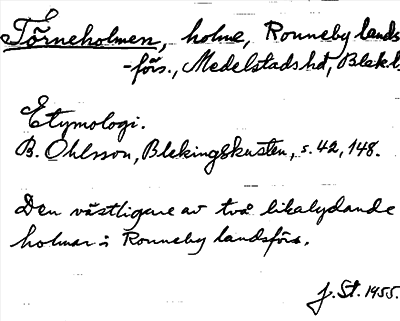 Törneholmen, holme, Ronneby lands
-förs., Medelstads hd, Blekl.
Etymologi.
B. Ohlsson, Blekingskusten, s. 42, 148.
Den västligare av två likalydande
holmar i Ronneby landsförs.
J. St. 1955.